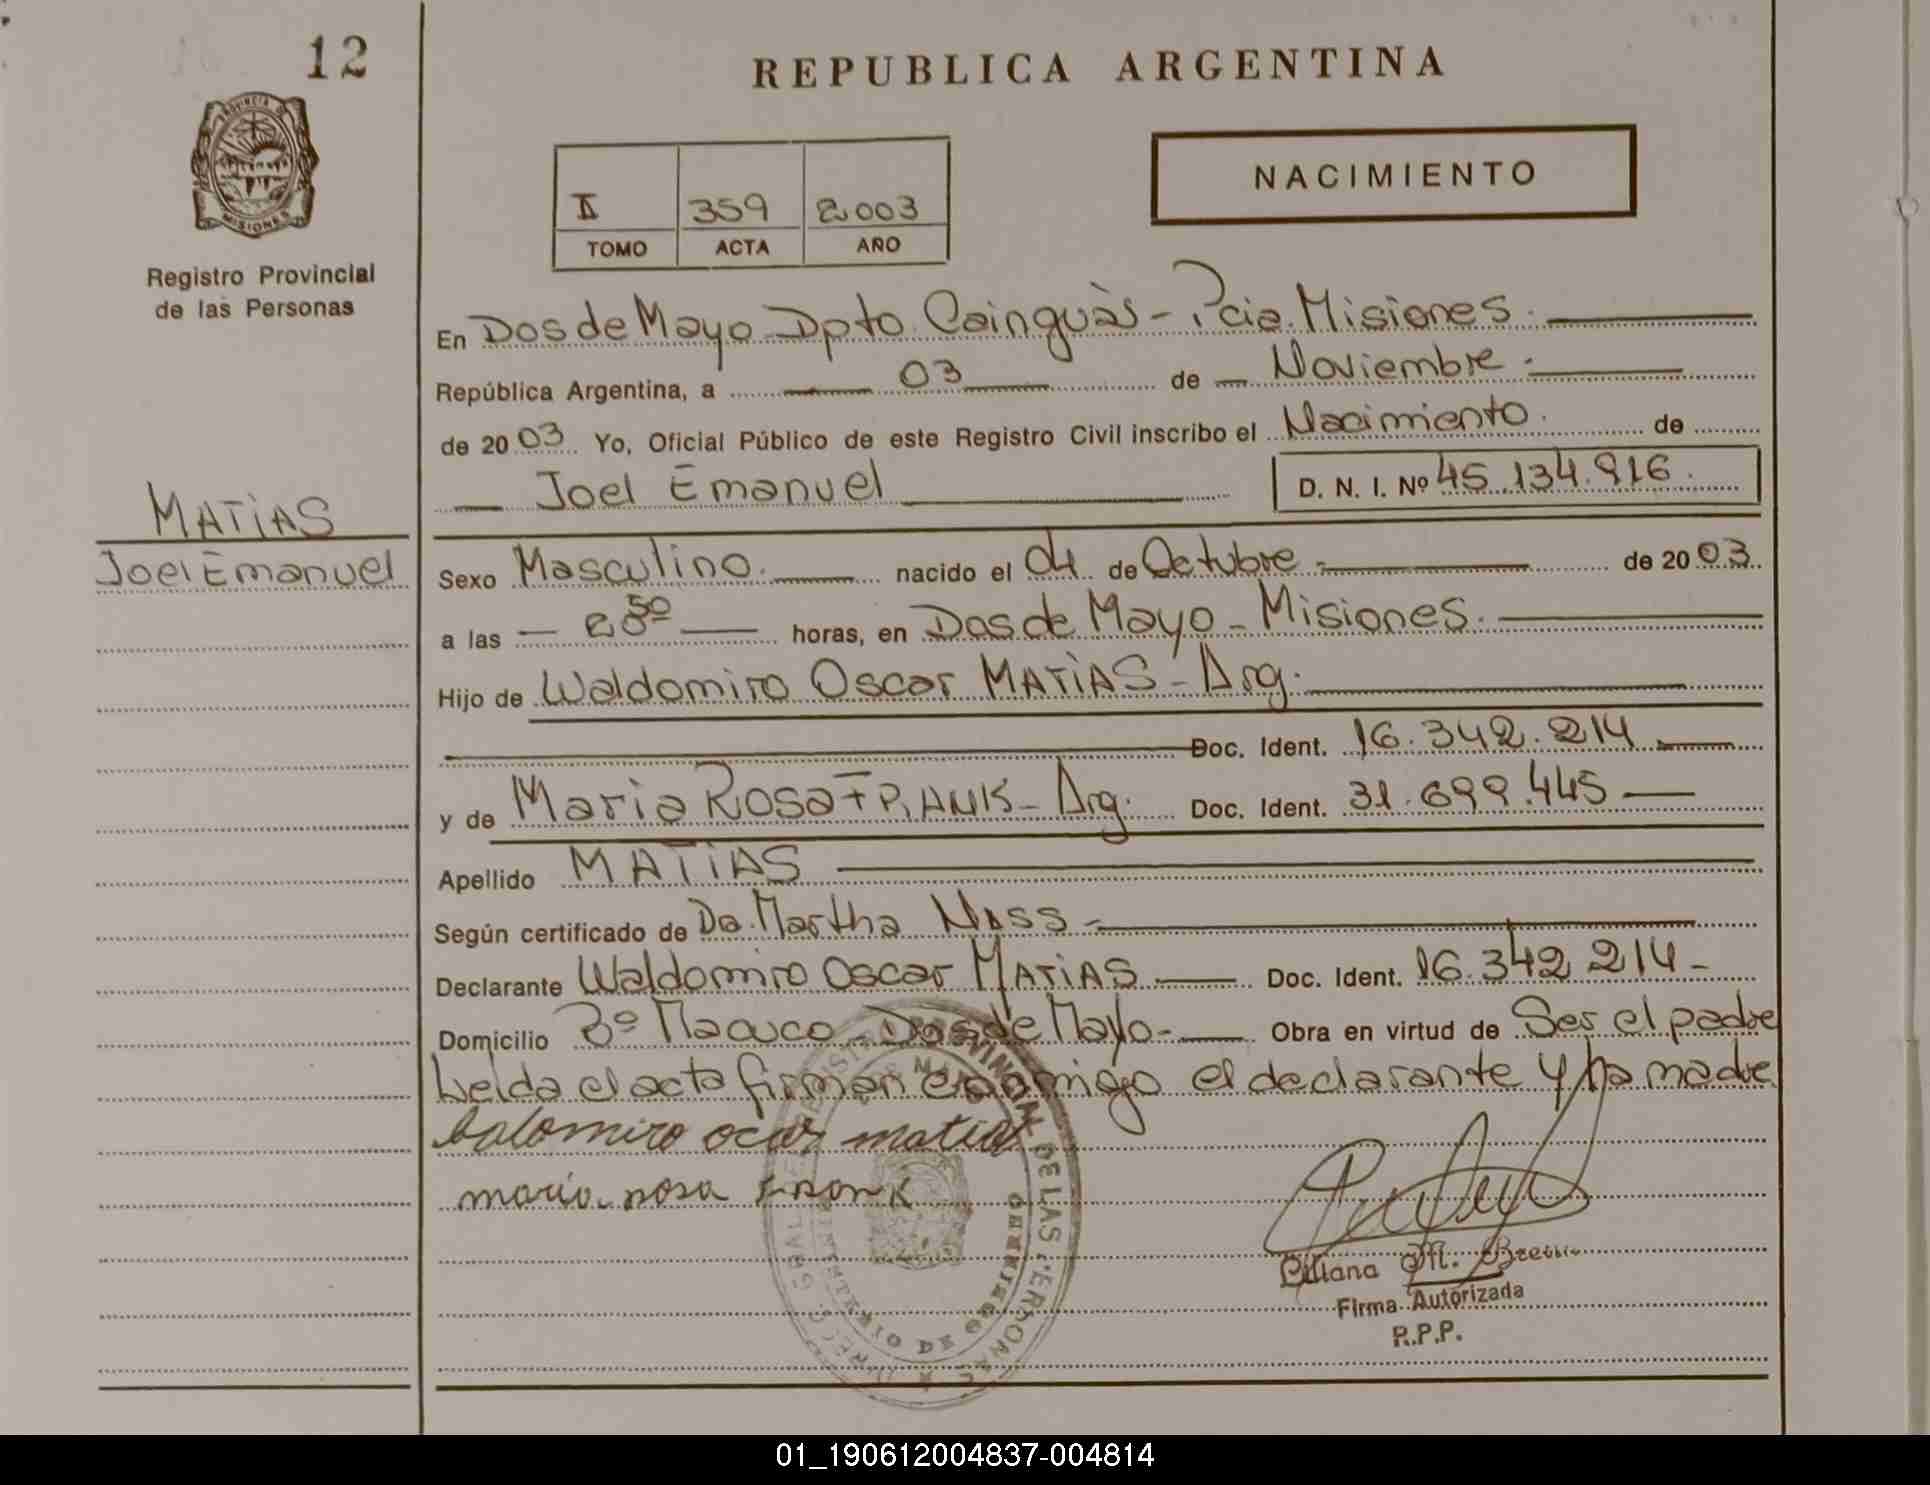 12
REPUBLICA ARGENTINA
PROVINCIA DE
MISIONES
Registro Provincial
de las Personas
II 359 2003
TOMO ACTA AÑO
NACIMIENTO
En Dos de Mayo Dpto. Cainguàs - Pcia. Misiones.
República Argentina, a 03 de Noviembre
de 2003. Yo, Oficial Público de este Registro Civil inscribo el Nacimiento. de
Joel Emanuel D. N. I. Nº 45.134.916.
MATIAS
Joel Emanuel
Sexo Masculino. nacido el 04 de Octubre de 2003.
a las horas, en Dos de Mayo - Misiones.
Hijo de Waldomiro Oscar MATIAS - Arg.
Doc. Ident. 16.342.214
y de Maria Rosa FRANK - Arg. Doc. Ident. 31.699.445
Apellido MATIAS
Según certificado de Da. Martha NASS
Declarante Waldomiro Oscar MATIAS Doc. Ident. 16.342.214 -
Domicilio Bº Macuco - Dos de Mayo - Obra en virtud de Ser el padre
Leida el acta firman conmigo el declarante y la madre
balomiro ocar matia
maria rosa FRANK
Liliana M.
Firma Autorizada
R.P.P.
01_190612004837-004814